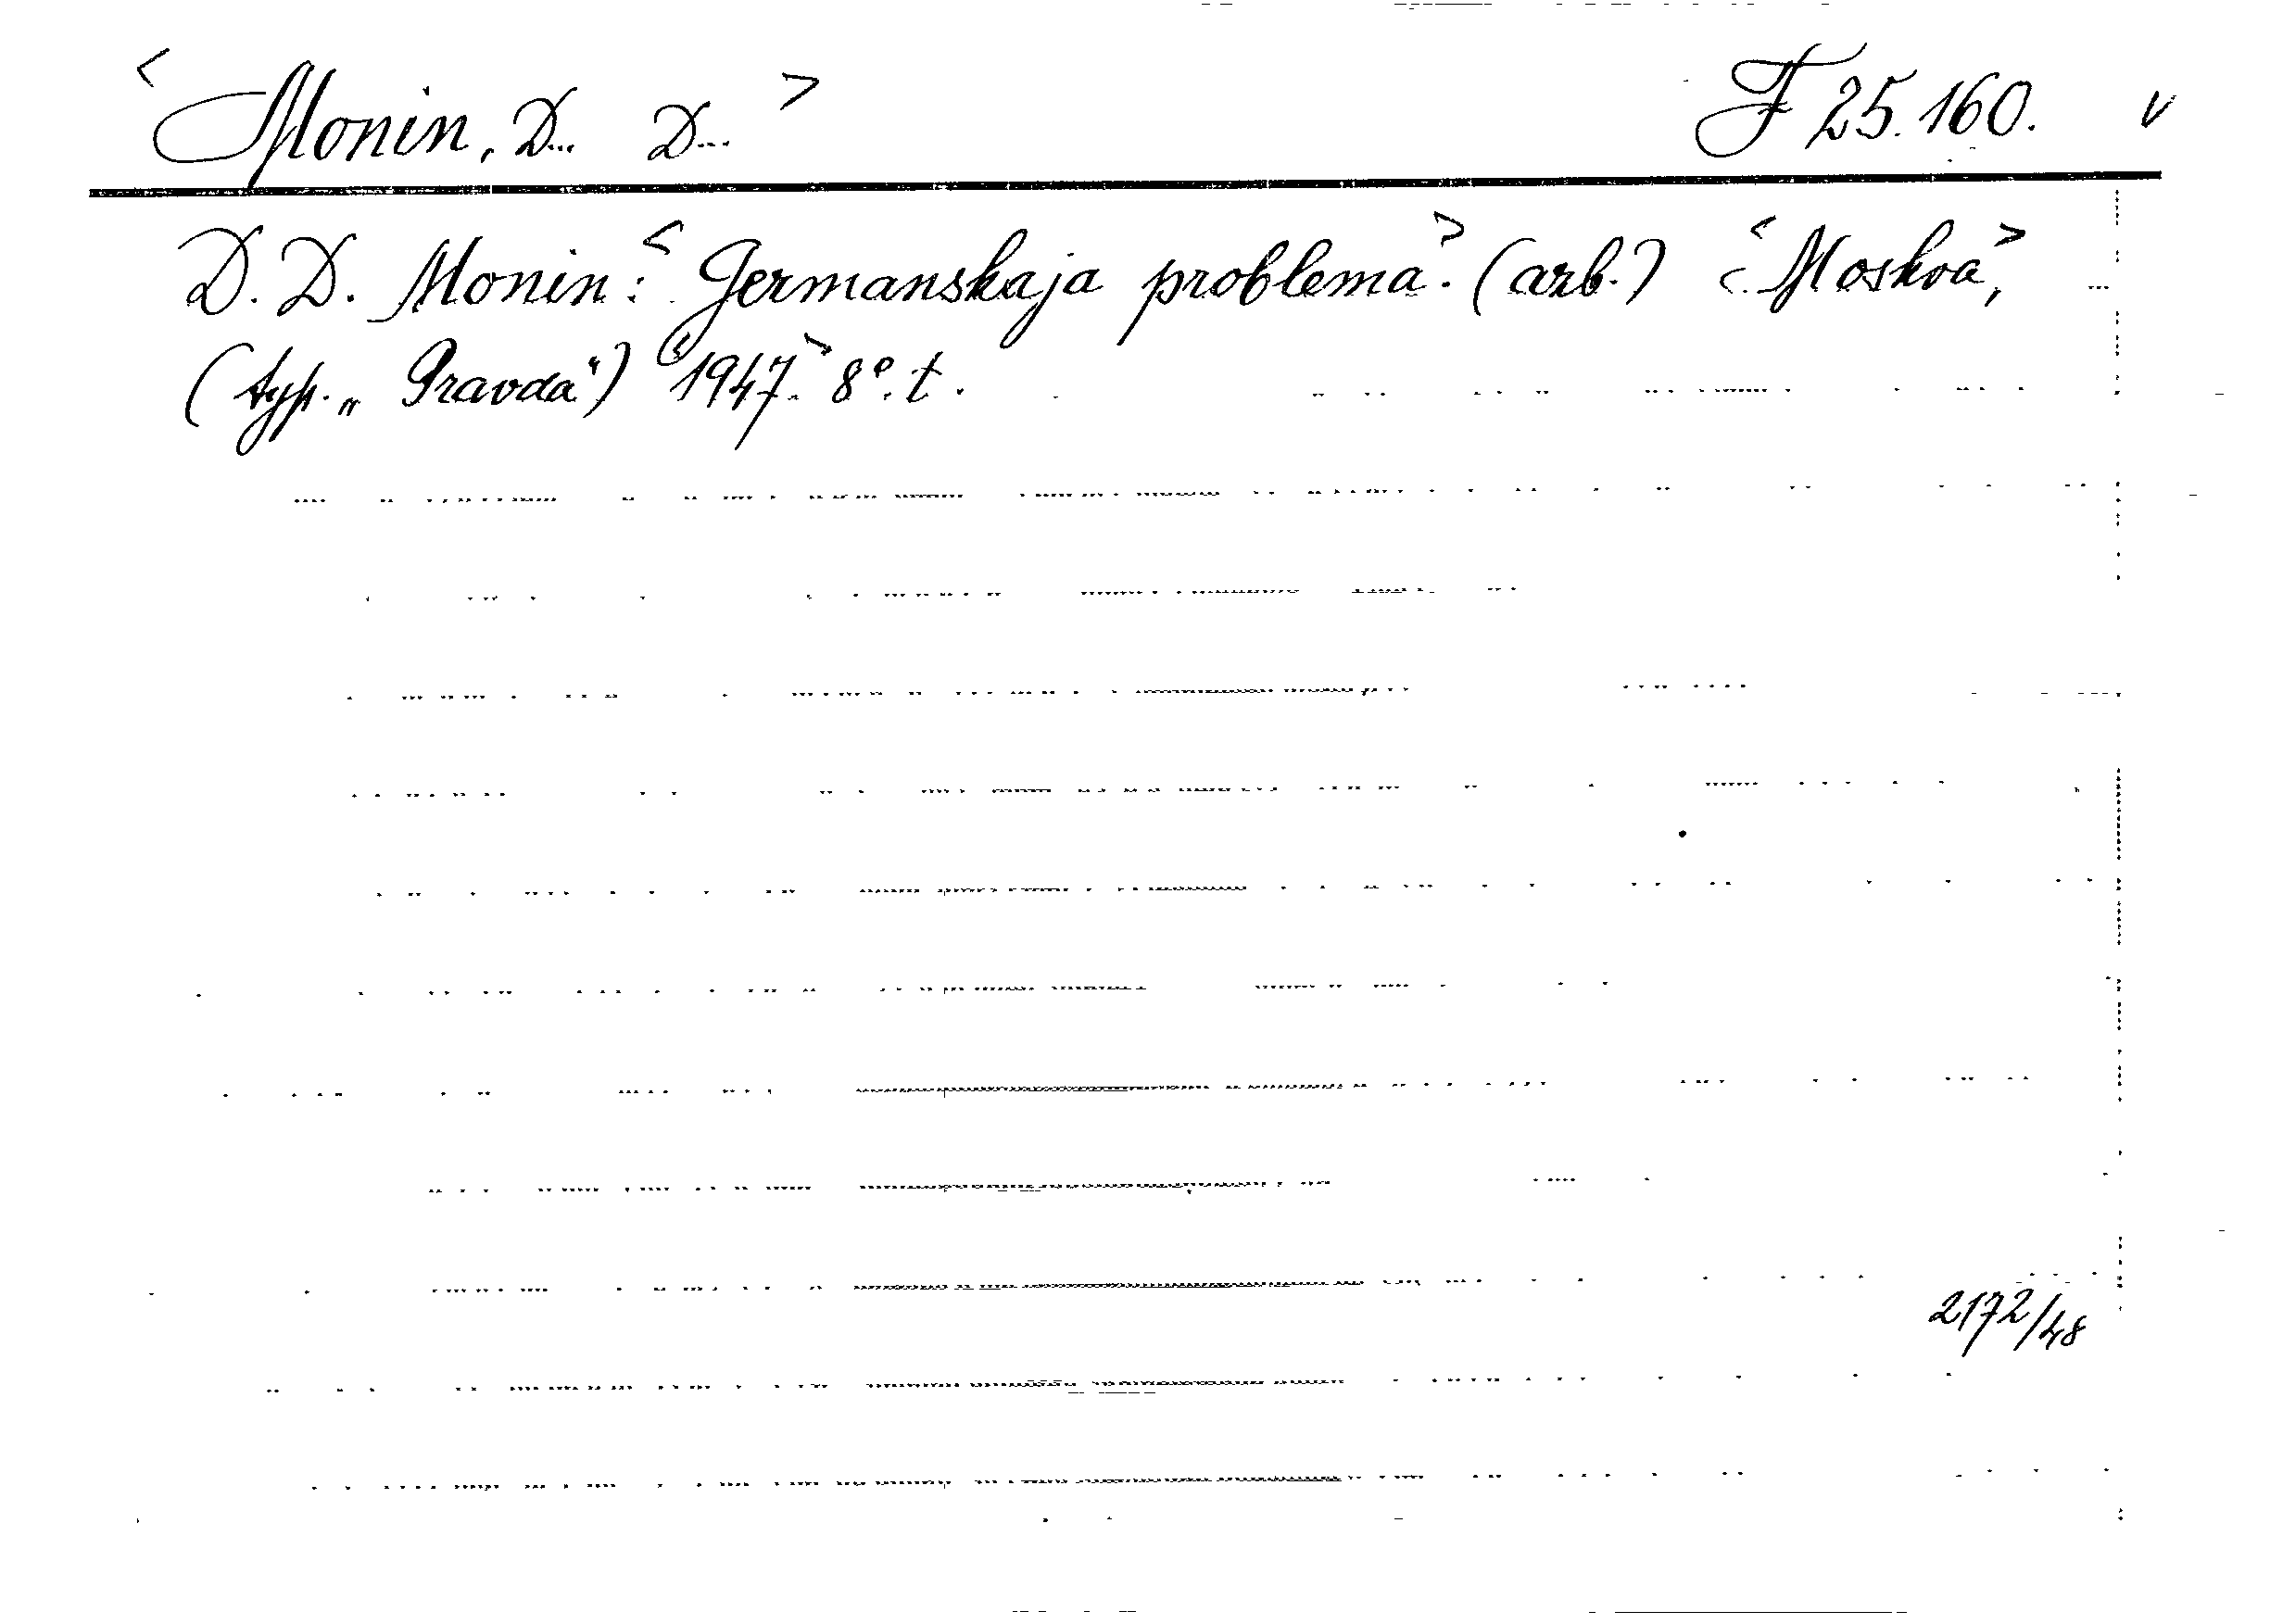 <Monin, D... D...> F 25.160. v
D. D. Monin: <Germanskaja problema.> (azb.) <Moskva,>
(typ. „Pravda“) <1947.> 8°. t.
2172/48